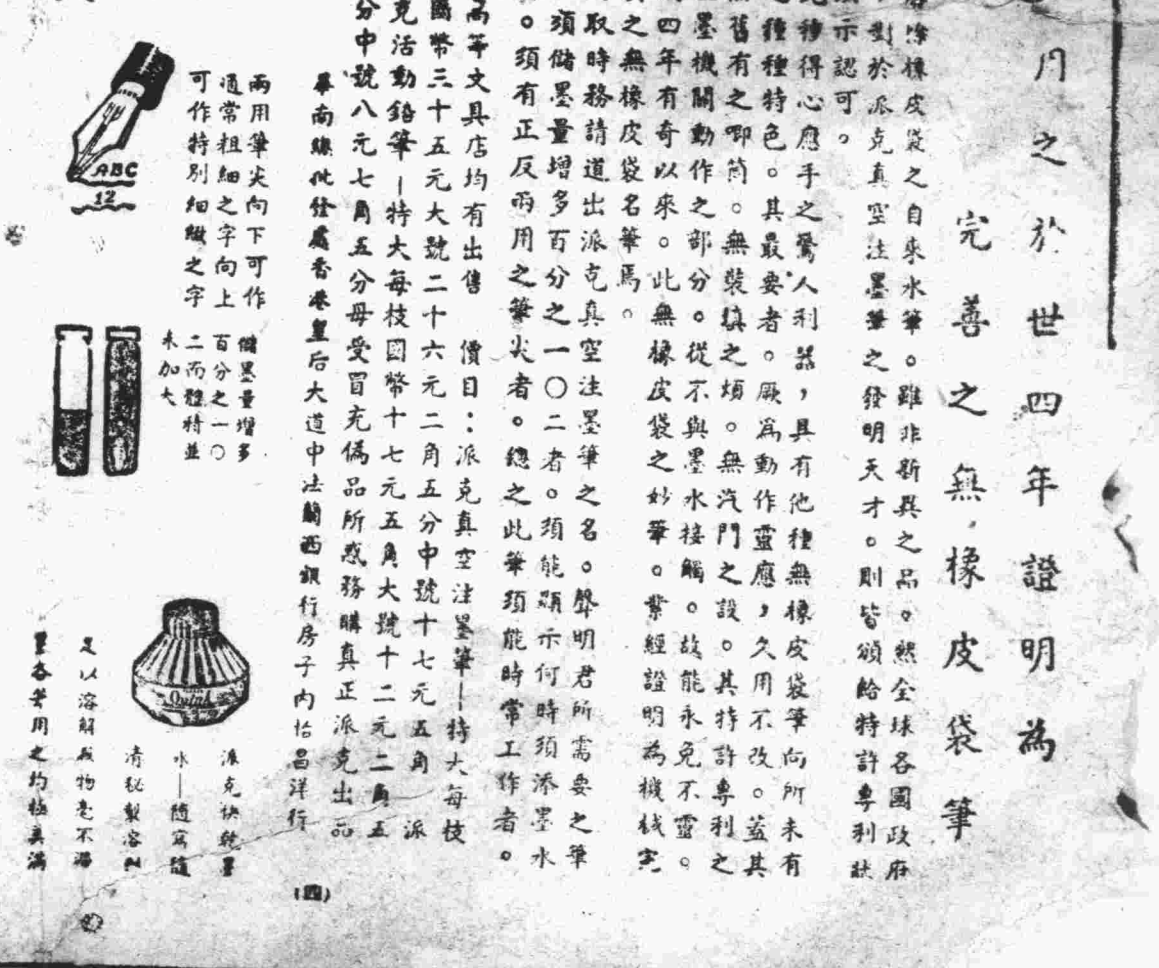 月之於世四年證明為
完善之無橡皮袋筆
除橡皮袋之自來水筆。雖非新異之品。然全球各國政府
對於派克真空注墨筆之發明天才。則皆頒給特許專利狀
示認可。
種得心應手之驚人利器，具有他種無橡皮袋筆向所未有
種種特色。其最要者。厥為動作靈應，久用不改。蓋其
舊有之唧筒。無裝填之煩。無汽門之設。其特許專利之
墨機關動作之部分。從不與墨水接觸。故能永免不靈。
四年有奇以來。此無橡皮袋之妙筆。業經證明為機械完
之無橡皮袋名筆焉。
取時務請道出派克真空注墨筆之名。聲明君所需要之筆
須儲墨量增多百分之一〇二者。須能顯示何時須添墨水
。須有正反兩用之筆尖者。總之此筆須能時常工作者。
高等文具店均有出售 價目：派克真空注墨筆—特大每枝
國幣三十五元大號二十六元二角五分中號十七元五角 派
克活動鉛筆—特大每枝國幣十七元五角大號十二元二角五
分中號八元七角五分毋受冒充偽品所惑務購真正派克出品
華南總批發處香港皇后大道中法蘭西銀行房子內怡昌洋行
(四)
兩用筆尖向下可作
通常粗細之字向上
可作特別細緻之字
ABC
12
儲墨量增多
百分之一〇
二而體積並
未加大
Quink
派克快乾墨
水—隨寫隨
清秘製溶劑
足以溶解滓物毫不滯